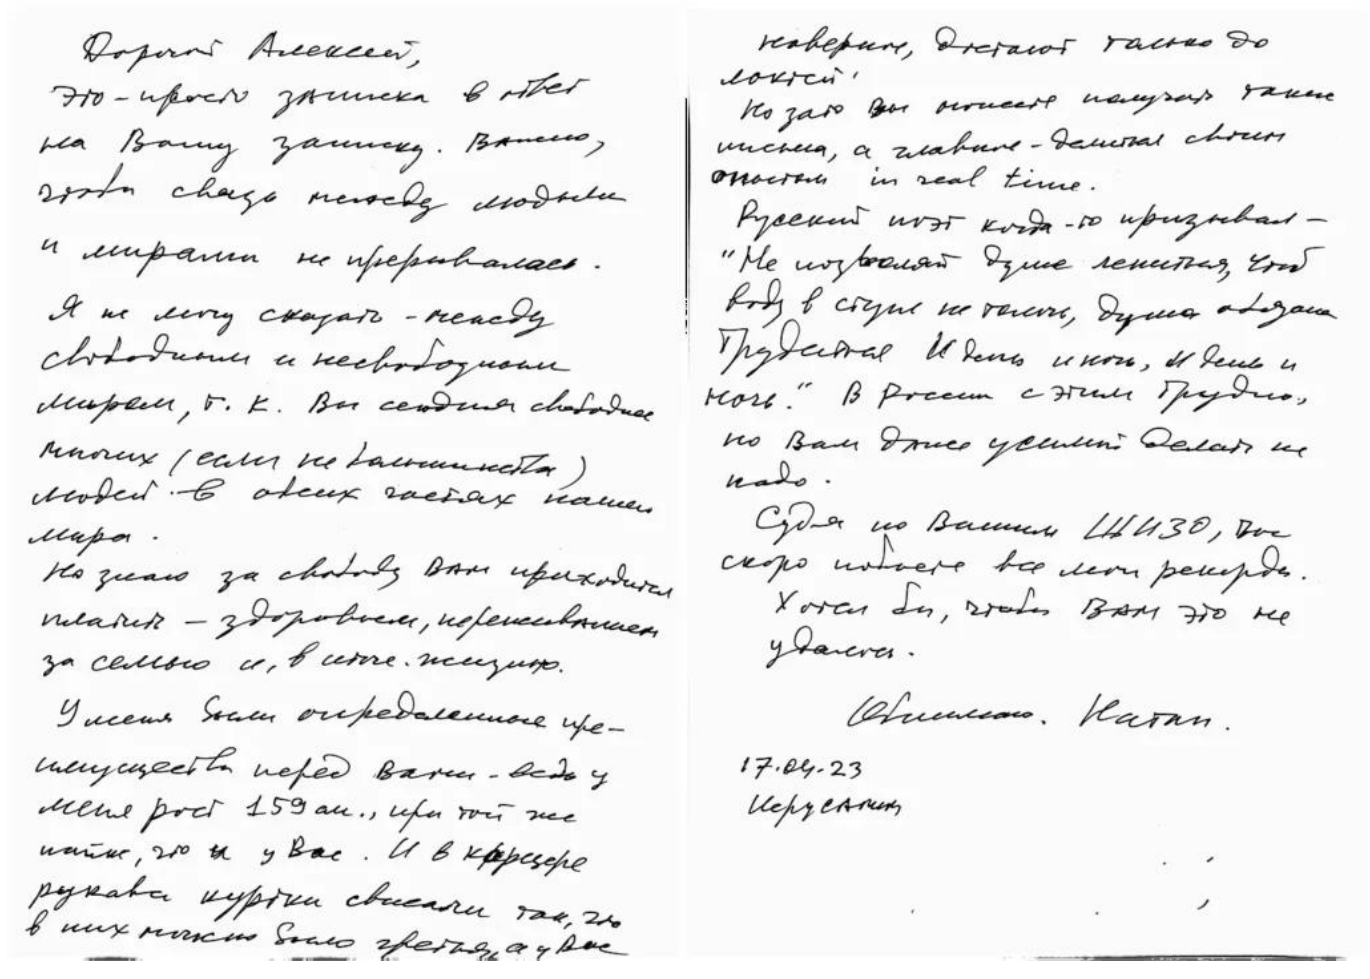 Дорогой Алексей,
Это - просто записка в ответ
на Вашу записку. Важно,
чтобы связь между людьми
и мирами не прерывалась.
Я не могу сказать - между
свободным и несвободным
миром, т. к. Вы сегодня свободнее
многих (если не большинства)
людей в обеих частях нашего
мира.
Но знаю за свободу Вам приходится
платить - здоровьем, переживанием
за семью и, в итоге. жизнью.
У меня были определенные пре-
имущества перед Вами - ведь у
меня рост 159 см., при той же
пайке, что и у Вас. И в карцере
рукава куртки свисали так, что
в них можно было греться, а у Вас
наверное, достают только до
локтей!
Но зато Вы можете получать такие
письма, а главное - делиться своим
опытом in real time.
Русский поэт когда-то призывал -
"Не позволяй душе лениться, чтоб
воду в ступе не толочь, душа обязана
трудиться И день и ночь, И день и
ночь." В России с этим трудно,
но Вам даже усилий делать не
надо.
Судя по Вашим ШИЗО, Вы
скоро побьете все мои рекорды.
Хотел бы, чтобы Вам это не
удалось.
Обнимаю. Натан.
17.04.23
Иерусалим